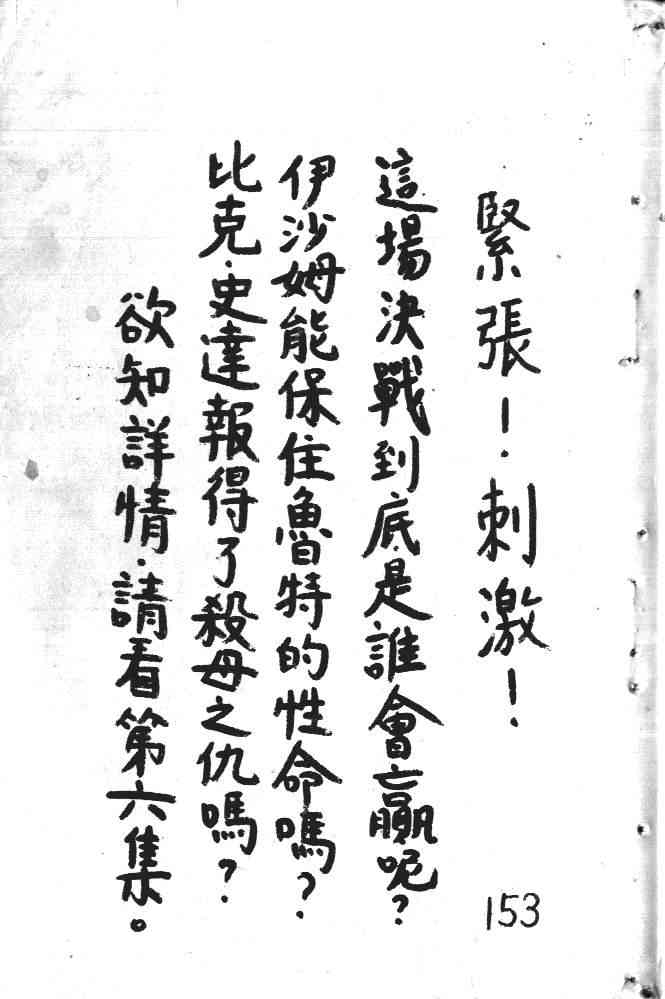 緊張！刺激！
這場決戰到底是誰會贏呢？
伊沙姆能保住魯特的性命嗎？
比克·史達報得了殺母之仇嗎？
欲知詳情·請看第六集。
153